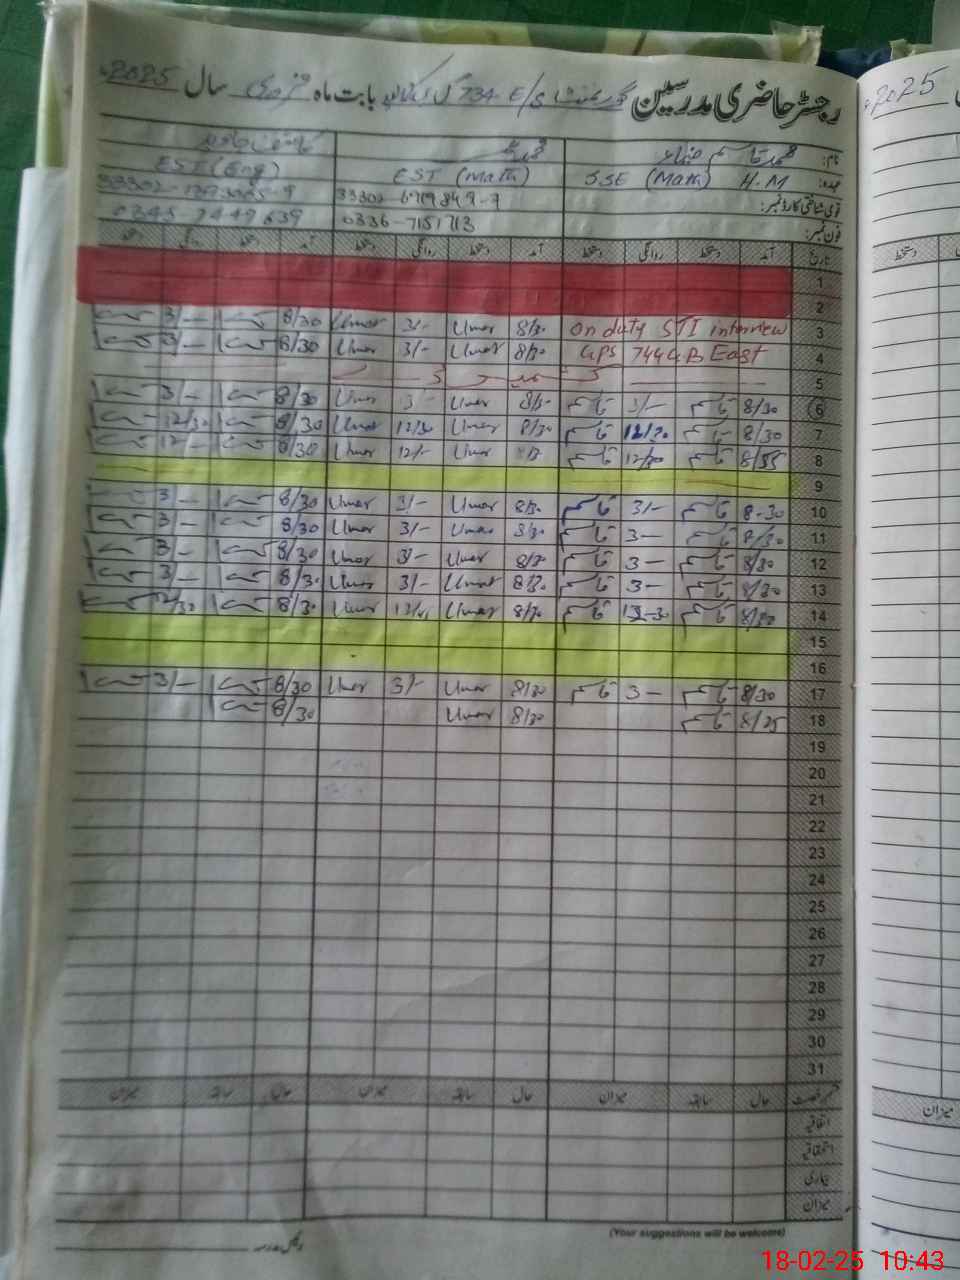 رجسٹر حاضری مدرسین گورنمنٹ E/S 734 گ ب بابت ماہ فروری سال 2025ء
2025ء
نام: محمد قاسم ضیاء
عہدہ: SSE (Math) H.M EST (Math) EST (Eng)
قومی شناختی کارڈ نمبر: 33302-6719849-7
فون نمبر: 0336-7151713 0345-7449639
تاریخ آمد دستخط روانگی دستخط آمد دستخط روانگی دستخط آمد دستخط روانگی دستخط
1
2
3 on duty STI interview 8/30 Umar 3/- Umar 8/30 3/-
4 GPS 744 GB East 8/30 Umar 3/- Umar 8/30 3/-
5
6 8/30 قاسم 3/- قاسم 8/30 Umar 3/- Umar 8/30 3/-
7 8/30 قاسم 12/30 قاسم 8/30 Umar 12/30 Umar 8/30 12/30
8 8/55 قاسم 12/30 قاسم Umar 12/- Umar 8/30 12/-
9
10 8-30 قاسم 3/- قاسم 8/30 Umar 3/- Umar 8/30 3/-
11 8/30 قاسم 3- قاسم 8/30 Umar 3/- Umar 8/30 3/-
12 8/30 قاسم 3- قاسم 8/30 Umar 3/- Umar 8/30 3/-
13 8/30 قاسم 3- قاسم 8/30 Umar 3/- Umar 8/30 3/-
14 8/30 قاسم 12-30 قاسم 8/30 Umar Umar 8/30 12/30
15
16
17 8/30 قاسم 3- قاسم 8/30 Umar 3/- Umar 8/30 3/-
18 8/25 قاسم 8/30 Umar 8/30
19
20
21
22
23
24
25
26
27
28
29
30
31
قسم رخصت حال سابقہ میزان حال سابقہ میزان حال سابقہ میزان
اتفاقیہ
استحقاقیہ
بیماری
میزان
میزان
(Your suggestions will be welcome)
18-02-25 10:43